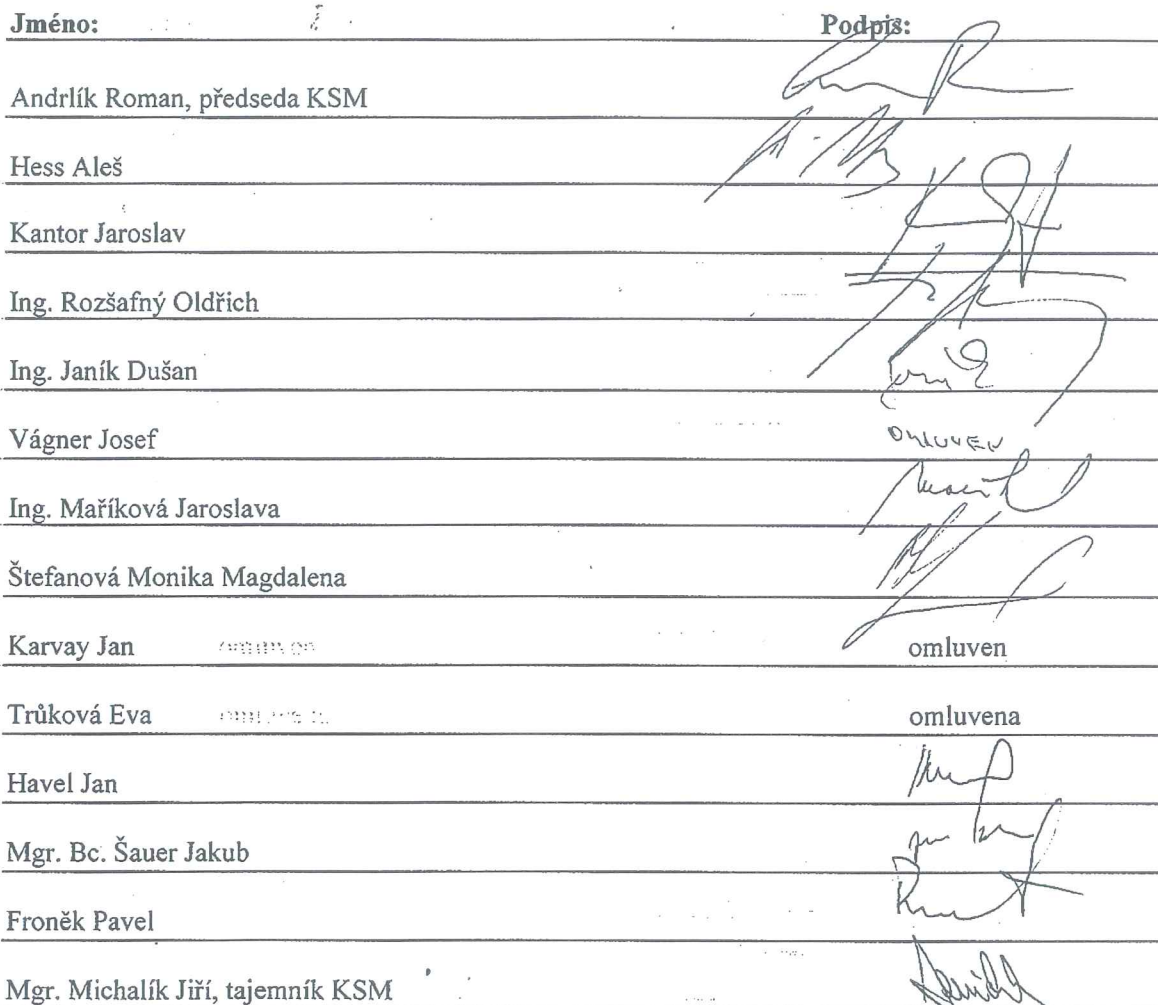 Jméno: Podpis:
Andrlík Roman, předseda KSM
Hess Aleš
Kantor Jaroslav
Ing. Rozšafný Oldřich
Ing. Janík Dušan
Vágner Josef OMLUVEN
Ing. Maříková Jaroslava
Štefanová Monika Magdalena
Karvay Jan omluven
Trůková Eva omluvena
Havel Jan
Mgr. Bc. Šauer Jakub
Froněk Pavel
Mgr. Michalík Jiří, tajemník KSM